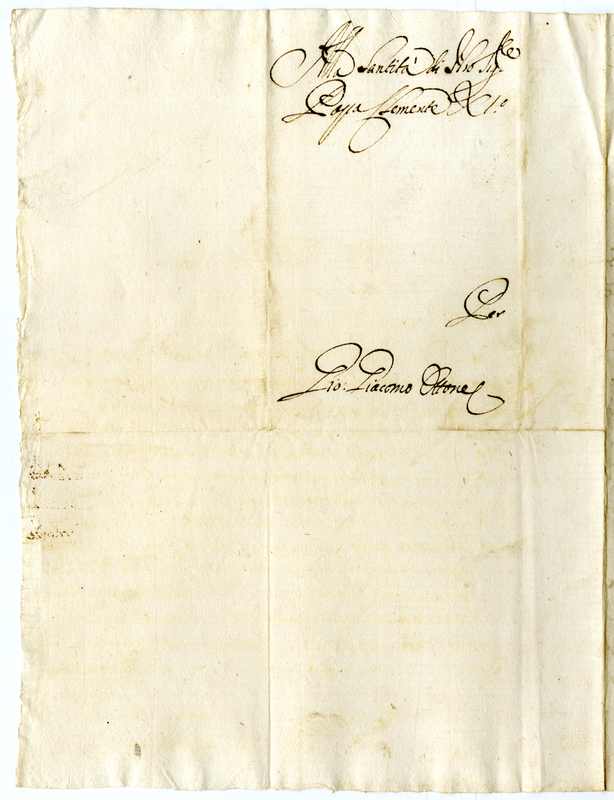 Alla Santità di Nro Sig.re
Papa Clemente XI.o
Per
Gio: Giacomo Ottone